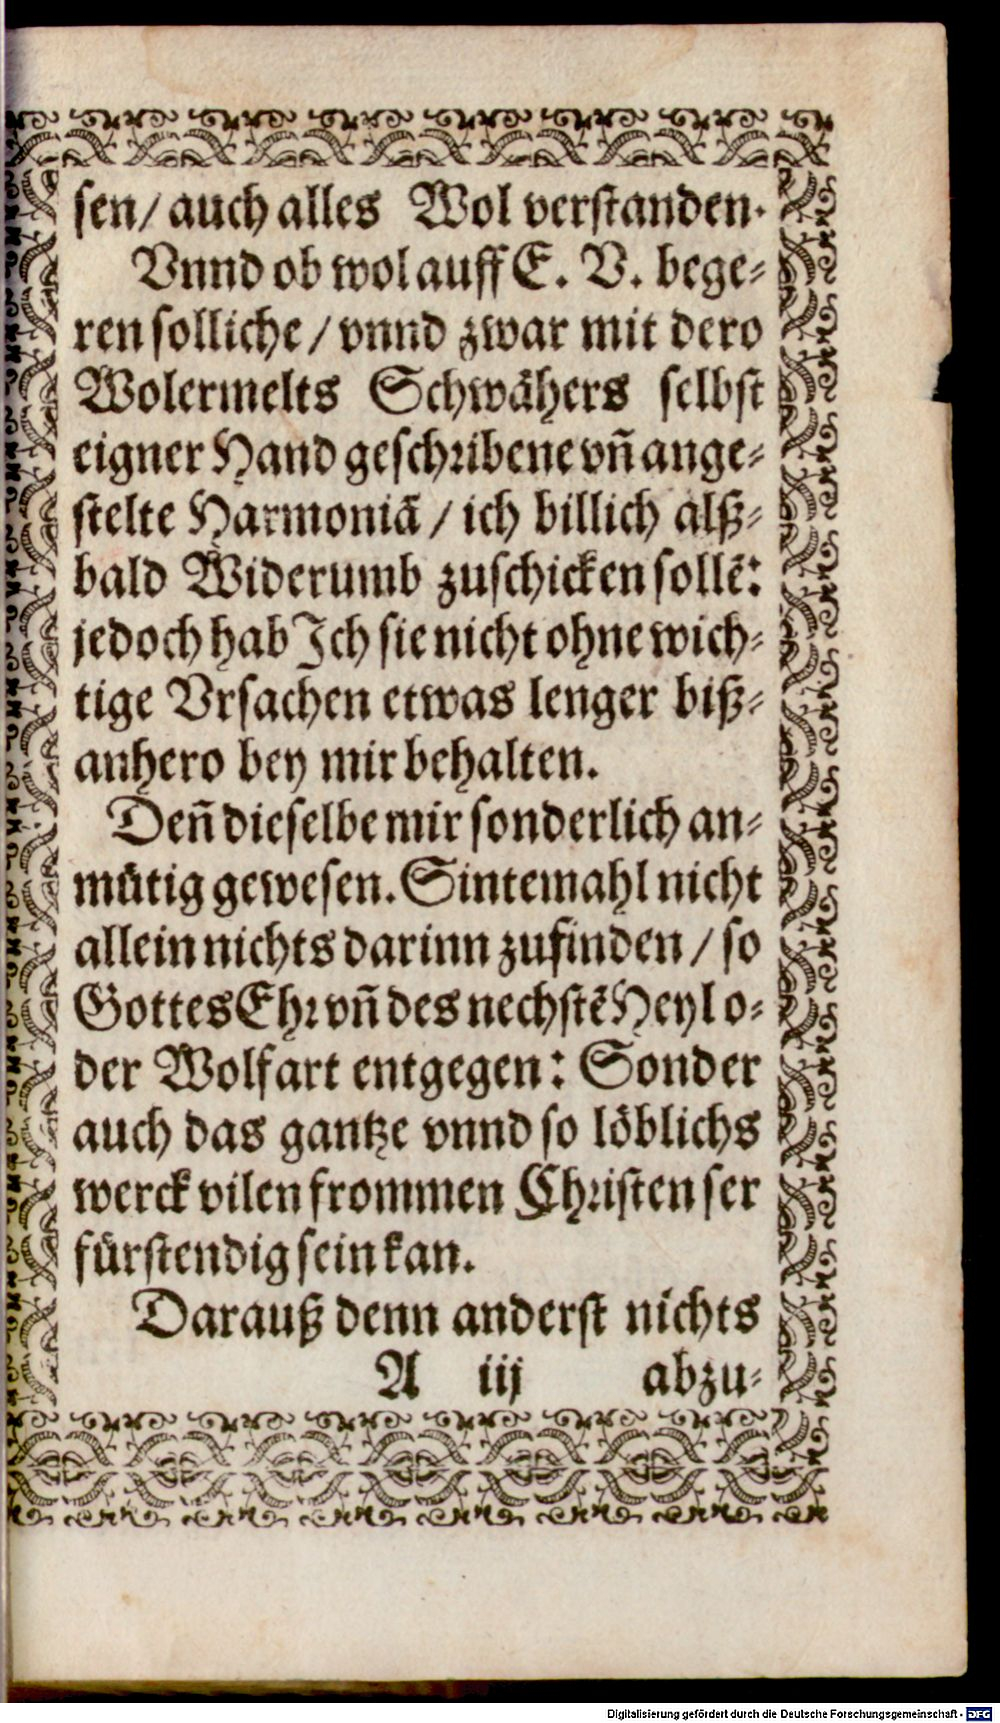 sen/ auch alles Wol verstanden.
Vnnd ob wol auff E. V. bege-
ren solliche / vnnd zwar mit dero
Wolermelts Schwähers selbst
eigner Hand geschribene vn̄ ange-
stelte Harmoniā / ich billich alß-
bald Widerumb zuschicken sollē:
jedoch hab Ich sie nicht ohne wich-
tige Vrsachen etwas lenger biß-
anhero bey mir behalten.
Den̄ dieselbe mir sonderlich an-
mütig gewesen. Sintemahl nicht
allein nichts darinn zufinden / so
Gottes Ehr vn̄ des nechstē Heyl o-
der Wolfart entgegen: Sonder
auch das gantze vnnd so löblichs
werck vilen frommen Christen ser
fürstendig sein kan.
Darauß denn anderst nichts
A iij abzu-
Digitalisierung gefördert durch die Deutsche Forschungsgemeinschaft - DFG